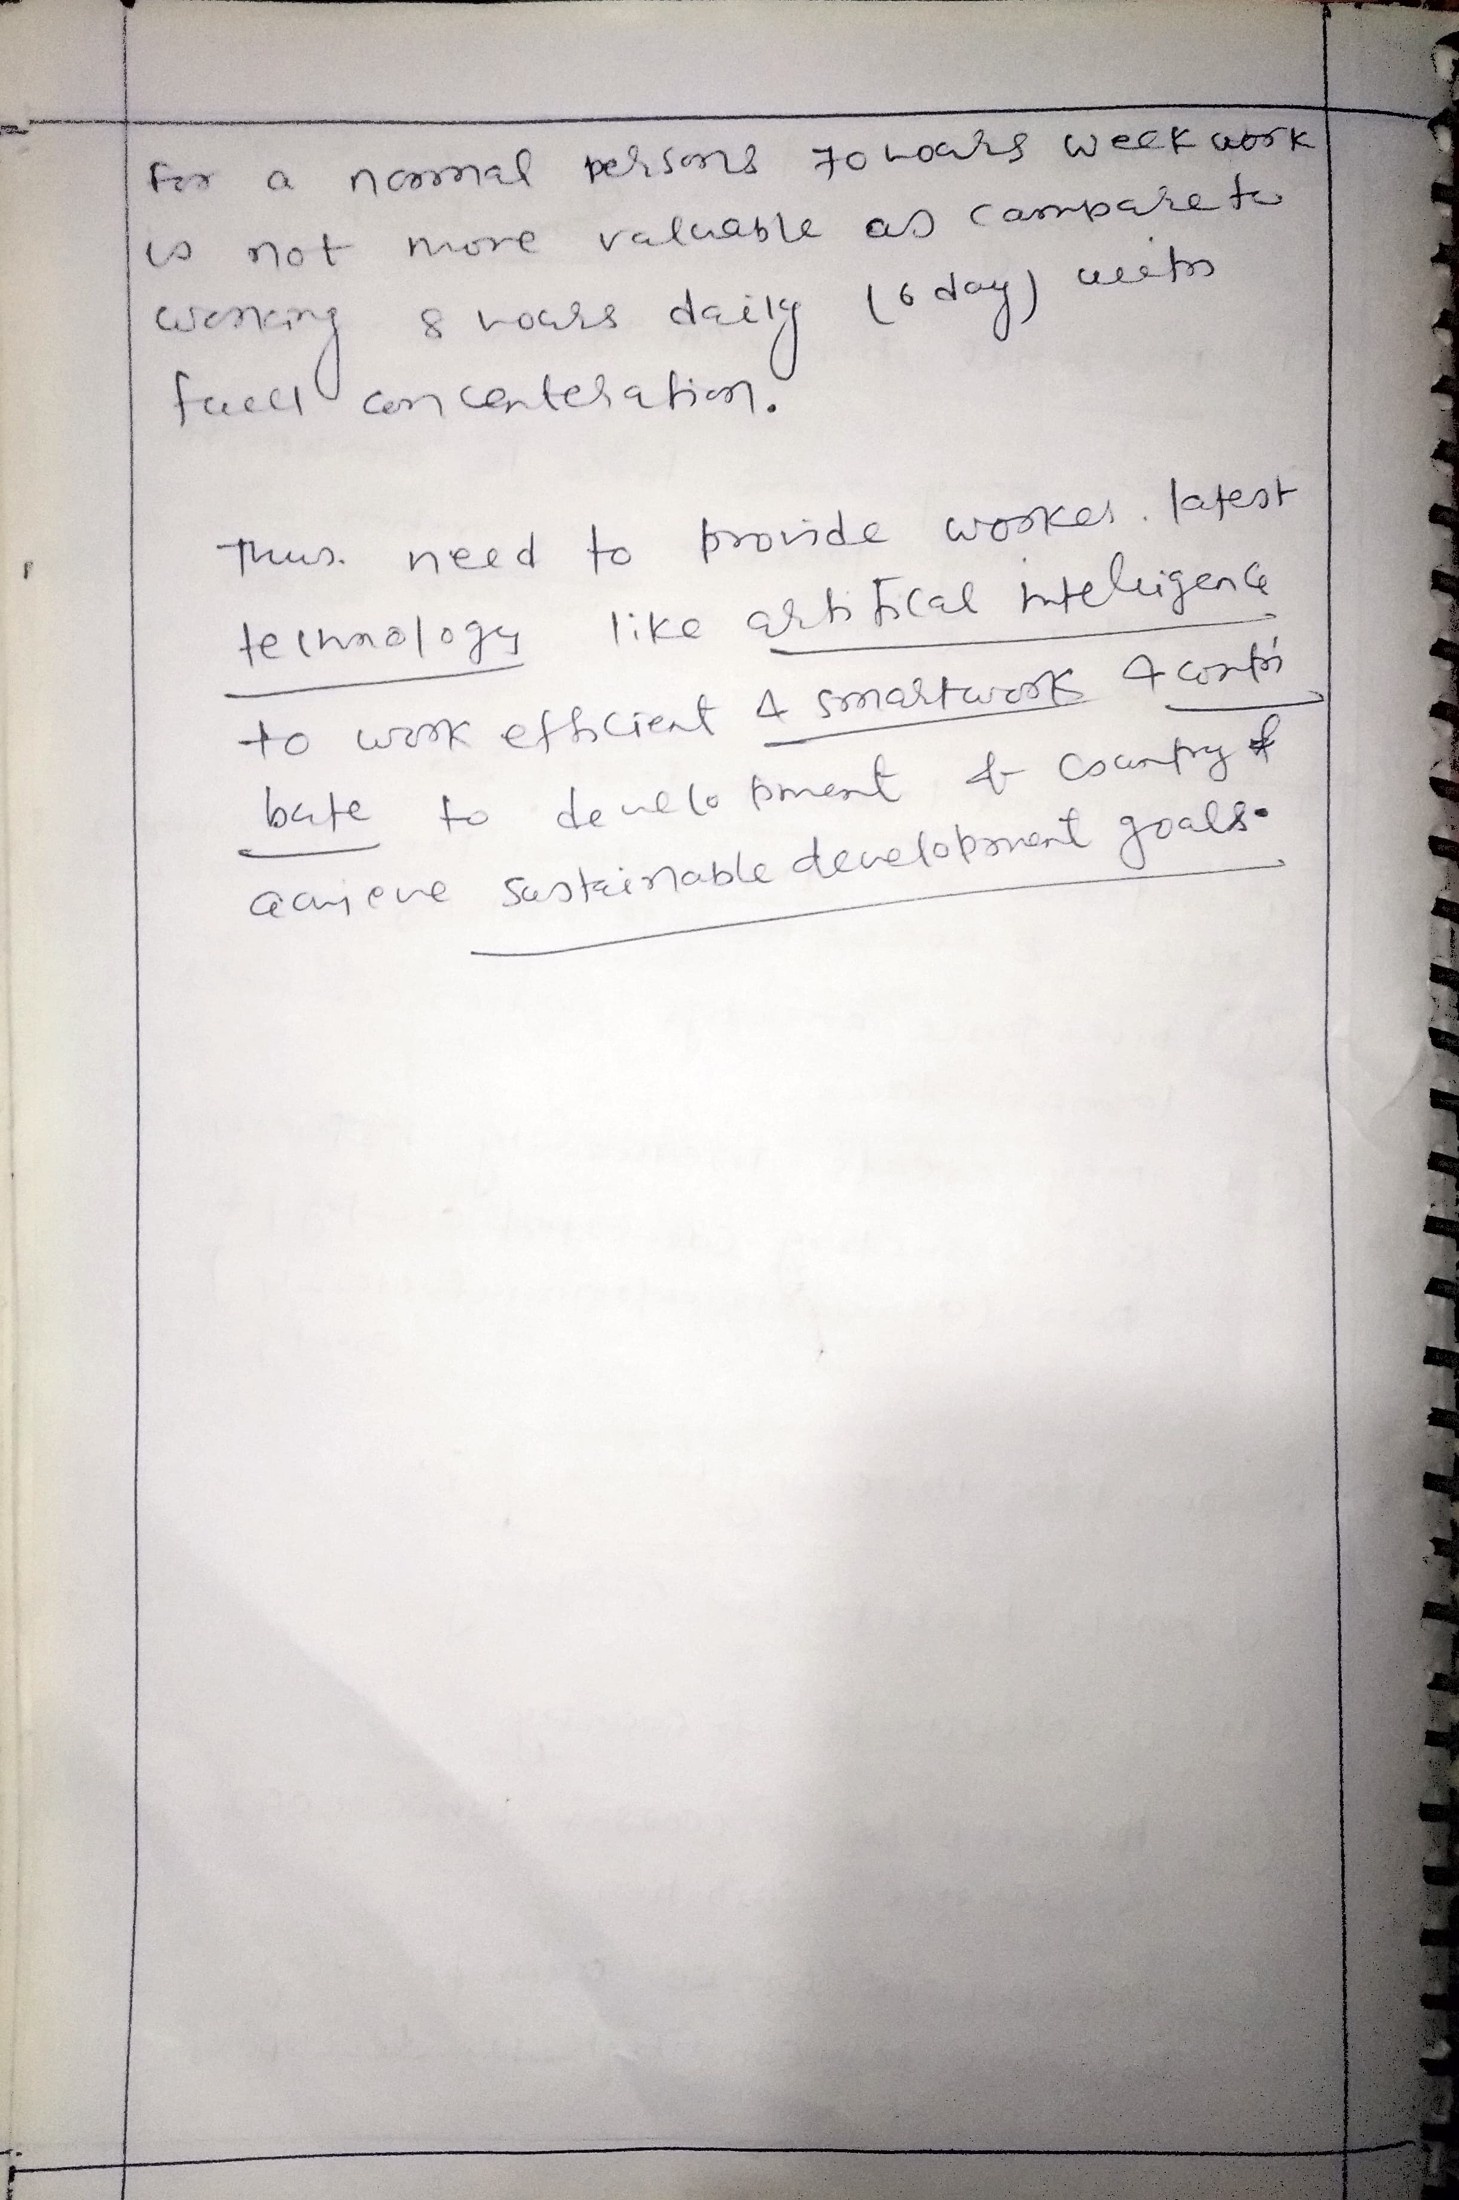 For a normal persons 70 hours week work
is not more valuable as compare to
working 8 hours daily (6 day) with
full concenteration.
Thus. need to provide worker. latest
technology like artifical intelligence
to work efficient & smartwork & contri
bute to development of country &
achieve sustainable development goals.